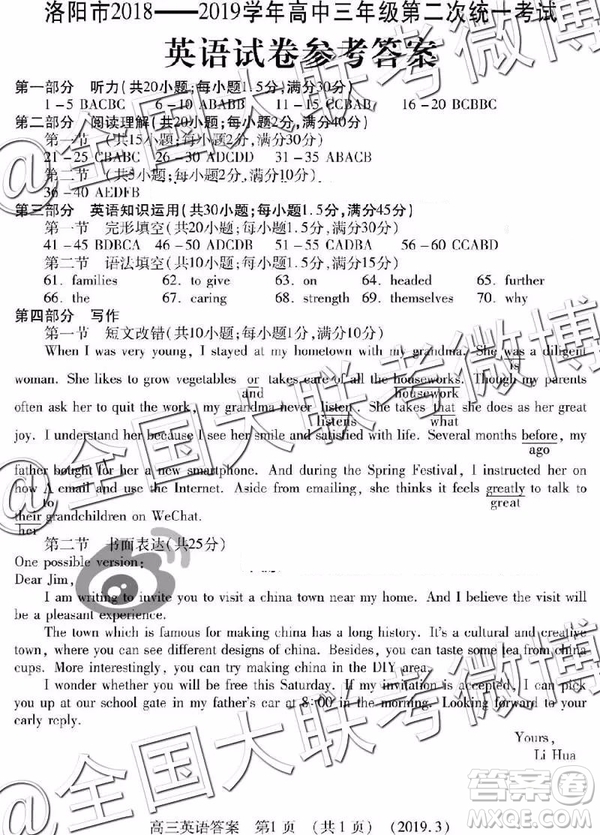 洛阳市2018——2019学年高中三年级第二次统一考试
英语试卷参考答案
第一部分 听力(共20小题;每小题1.5分;满分30分)
1-5 BACBC 6-10 ABABB 11-15 CCBAB 16-20 BCBBC
第二部分 阅读理解(共20小题;每小题2分,满分40分)
第一节 (共15小题;每小题2分,满分30分)
21-25 CBABC 26-30 ADCDD 31-35 ABACB
第二节 (共5小题;每小题2分,满分10分)
36-40 AEDFB
第三部分 英语知识运用(共30小题;每小题1.5分,满分45分)
第一节 完形填空(共20小题;每小题1.5分,满分30分)
41-45 BDBCA 46-50 ADCBD 51-55 CADBA 56-60 CCABD
第二节 语法填空(共10小题;每小题1.5分,满分15分)
61. families 62. to give 63. on 64. headed 65. further
66. the 67. caring 68. strength 69. themselves 70. why
第四部分 写作
第一节 短文改错(共10小题;每小题1分,满分10分)
When I was very young, I stayed at my hometown with my grandma. She was a diligent
is
woman. She likes to grow vegetables or takes care of all the houseworks. Though my parents
and housework
often ask her to quit the work, my grandma never listen. She takes that she does as her great
listens what
joy. I understand her because I see her smile and satisfied with life. Several months before, my
ago
father bought for her a new smartphone. And during the Spring Festival, I instructed her on
how A email and use the Internet. Aside from emailing, she thinks it feels greatly to talk to
to great
their grandchildren on WeChat.
her
第二节 书面表达(共25分)
One possible version:
Dear Jim,
I am writing to invite you to visit a china town near my home. And I believe the visit will
be a pleasant experience.
The town which is famous for making china has a long history. It's a cultural and creative
town, where you can see different designs of china. Besides, you can taste some tea from china
cups. More interestingly, you can try making china in the DIY area.
I wonder whether you will be free this Saturday. If my invitation is accepted, I can pick
you up at our school gate in my father's car at 8:00 in the morning. Looking forward to your
early reply.
Yours,
Li Hua
高三英语答案 第1页 (共1页) (2019.3)
@全国大联考微博
答案圈
MXQE.COM